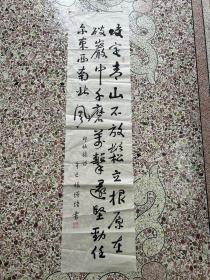 咬定青山不放鬆立根原在
破巖中千磨萬擊還堅勁任
尔東西南北風